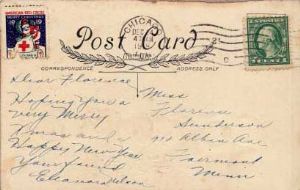 AMERICAN RED CROSS
MERRY CHRISTMAS
CHICAGO
DEC
Post Card
CORRESPONDENCE
ADDRESS ONLY
Dear Florence
Hoping you a
very Merry
Xmas and a
Happy New Year
Your friend
Eleanor
Miss
Florence
Sunderson
Albion Ave
Fairmont
Minn